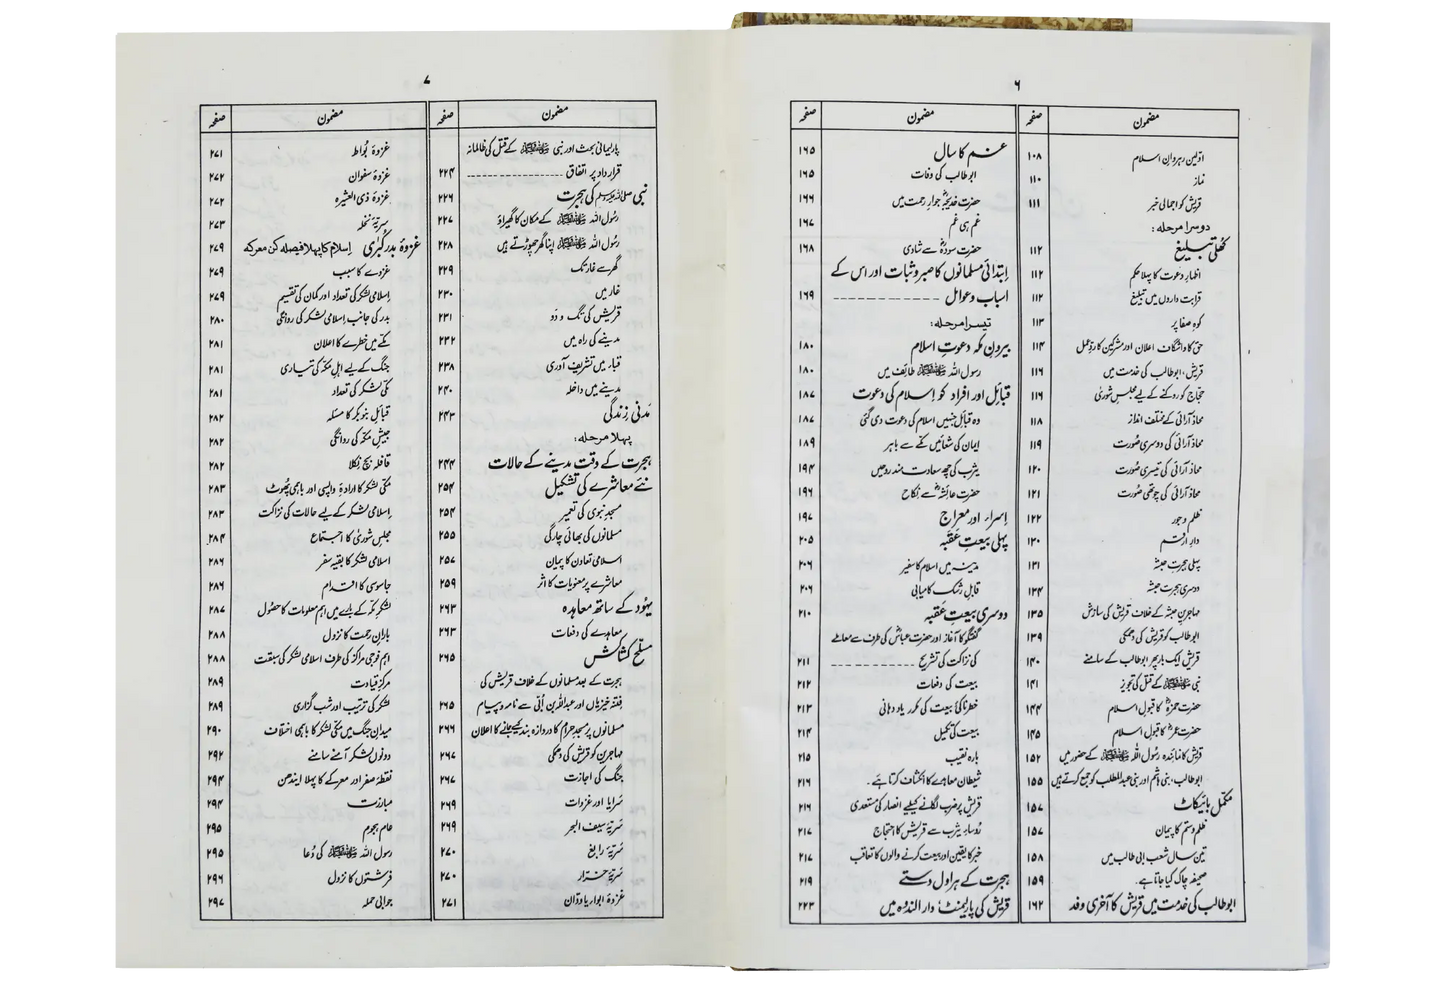 ۶
مضمون صفحہ
اوّلین رہروانِ اسلام ۱۰۸
نماز ۱۱۰
قریش کو اجمالی خبر ۱۱۱
دوسرا مرحلہ:
کھلی تبلیغ ۱۱۲
اظہارِ دعوت کا پہلا حکم ۱۱۲
قرابت داروں میں تبلیغ ۱۱۲
کوہِ صفا پر ۱۱۳
حق کا واشگاف اعلان اور مشرکین کا ردِّ عمل ۱۱۴
قریش، ابوطالب کی خدمت میں ۱۱۶
حجاج کو روکنے کے لیے مجلسِ شوریٰ ۱۱۶
محاذ آرائی کے مختلف انداز ۱۱۸
محاذ آرائی کی دوسری صُورت ۱۱۹
محاذ آرائی کی تیسری صُورت ۱۲۰
محاذ آرائی کی چوتھی صُورت ۱۲۱
ظلم و جور ۱۲۲
دارِ ارقم ۱۳۰
پہلی ہجرتِ حبشہ ۱۳۱
دوسری ہجرتِ حبشہ ۱۳۴
مہاجرینِ حبشہ کے خلاف قریش کی سازش ۱۳۵
ابوطالب کو قریش کی دھمکی ۱۳۹
قریش ایک بار پھر ابوطالب کے سامنے ۱۴۰
نبی ﷺ کے قتل کی تجویز ۱۴۱
حضرت حمزہؓ کا قبولِ اسلام ۱۴۴
حضرت عمرؓ کا قبولِ اسلام ۱۴۵
قریش کا نمائندہ رسُول اللہ ﷺ کے حضور میں ۱۵۲
ابوطالب، بنی ہاشم اور بنی عبدالمطلب کو جمع کرتے ہیں ۱۵۵
مکمل بائیکاٹ ۱۵۷
ظلم و ستم کا پیمان ۱۵۷
تین سال شعبِ ابی طالب میں ۱۵۸
صحیفہ چاک کیا جاتا ہے۔ ۱۵۹
ابوطالب کی خدمت میں قریش کا آخری وفد ۱۶۲
مضمون صفحہ
غم کا سال ۱۶۵
ابوطالب کی وفات ۱۶۵
حضرت خدیجہؓ جوارِ رحمت میں ۱۶۶
غم ہی غم ۱۶۷
حضرت سودہؓ سے شادی ۱۶۸
اِبتدائی مسلمانوں کا صبر و ثبات اور اس کے
اسباب و عوامل ۱۶۹
تیسرا مرحلہ:
بیرونِ مکہ دعوتِ اسلام ۱۸۰
رسول اللہ ﷺ طائف میں ۱۸۰
قبائل اور افراد کو اِسلام کی دعوت ۱۸۷
وہ قبائل جنہیں اسلام کی دعوت دی گئی ۱۸۷
ایمان کی شعائیں مکے سے باہر ۱۸۹
یثرب کی چھ سعادت مند روحیں ۱۹۴
حضرت عائشہؓ سے نکاح ۱۹۶
اِسراء اور معراج ۱۹۷
پہلی بیعتِ عقبہ ۲۰۵
مدینہ میں اسلام کا سفیر ۲۰۶
قابلِ رشک کامیابی ۲۰۶
دوسری بیعتِ عقبہ ۲۱۰
گفتگو کا آغاز اور حضرت عباسؓ کی طرف سے معاملے
کی نزاکت کی تشریح ۲۱۱
بیعت کی دفعات ۲۱۲
خطرناکئ بیعت کی مکرر یاد دہانی ۲۱۳
بیعت کی تکمیل ۲۱۴
بارہ نقیب ۲۱۵
شیطان معاہدے کا انکشاف کرتا ہے۔ ۲۱۶
قریش پر ضرب لگانے کیلئے انصار کی مستعدی ۲۱۶
رُوساءِ یثرب سے قریش کا احتجاج ۲۱۷
خبر کا یقین اور بیعت کرنے والوں کا تعاقب ۲۱۷
ہجرت کے ہراول دستے ۲۱۹
قریش کی پارلیمنٹ؛ دار الندوہ میں ۲۲۳
۷
مضمون صفحہ
پارلیمانی بحث اور نبی ﷺ کے قتل کی ظالمانہ
قرار داد پر اتفاق ۲۲۴
نبی صلی اللہ علیہ وسلم کی ہجرت ۲۲۶
رسُول اللہ ﷺ کے مکان کا گھیراؤ ۲۲۷
رسُول اللہ ﷺ اپنا گھر چھوڑتے ہیں ۲۲۸
گھر سے غار تک ۲۲۹
غار میں ۲۳۰
قریش کی تگ و دَو ۲۳۱
مدینے کی راہ میں ۲۳۲
قباء میں تشریف آوری ۲۳۸
مدینے میں داخلہ ۲۴۰
مَدنی زِندگی ۲۴۳
پہلا مرحلہ:
ہجرت کے وقت مدینے کے حالات ۲۴۴
نئے معاشرے کی تشکیل ۲۵۴
مسجدِ نبوی کی تعمیر ۲۵۴
مسلمانوں کی بھائی چارگی ۲۵۵
اسلامی تعاون کا پیمان ۲۵۷
معاشرے پر معنویات کا اثر ۲۵۹
یہُود کے ساتھ معاہدہ ۲۶۳
معاہدے کی دفعات ۲۶۳
مسلح کشاکش ۲۶۵
ہجرت کے بعد مسلمانوں کے خلاف قریش کی
فتنہ خیزیاں اور عبداللہ بن اُبَیّ سے نامہ و پیام ۲۶۵
مسلمانوں پر مسجدِ حرام کا دروازہ بند کیے جانے کا اعلان ۲۶۶
مہاجرین کو قریش کی دھمکی ۲۶۷
جنگ کی اجازت ۲۶۷
سَرایا اور غزوات ۲۶۹
سَریۂ سیف البحر ۲۶۹
سَریۂ رابغ ۲۷۰
سَریۂ خرار ۲۷۰
غزوۂ ابواء یا ودّان ۲۷۱
مضمون صفحہ
غزوۂ بُواط ۲۷۱
غزوۂ سفوان ۲۷۲
غزوۂ ذی العشیرہ ۲۷۲
سریۂ نخلہ ۲۷۳
غزوۂ بدر کُبریٰ اِسلام کا پہلا فیصلہ کُن معرکہ ۲۷۹
غزوے کا سبب ۲۷۹
اِسلامی لشکر کی تعداد اور کمان کی تقسیم ۲۷۹
بدر کی جانب اِسلامی لشکر کی روانگی ۲۸۰
مکّے میں خطرے کا اعلان ۲۸۱
جنگ کے لیے اہلِ مکّہ کی تیاری ۲۸۱
مکی لشکر کی تعداد ۲۸۱
قبائلِ بنو بکر کا مسئلہ ۲۸۲
جیشِ مکّہ کی روانگی ۲۸۲
قافلہ بچ نکلا ۲۸۲
مکّی لشکر کا ارادۂ واپسی اور باہمی پھُوٹ ۲۸۳
اِسلامی لشکر کے لیے حالات کی نزاکت ۲۸۳
مجلسِ شوریٰ کا اجتماع ۲۸۴
اسلامی لشکر کا بقیہ سفر ۲۸۶
جاسوسی کا اقدام ۲۸۶
لشکرِ مکّہ کے بارے میں اہم معلومات کا حصُول ۲۸۷
بارانِ رحمت کا نزول ۲۸۸
اہم فوجی مراکز کی طرف اسلامی لشکر کی سبقت ۲۸۸
مرکزِ قیادت ۲۸۹
لشکر کی ترتیب اور شب گزاری ۲۸۹
میدانِ جنگ میں مکّی لشکر کا باہمی اختلاف ۲۹۰
دونوں لشکر آمنے سامنے ۲۹۲
نقطۂ صفر اور معرکے کا پہلا ایندھن ۲۹۴
مبارزت ۲۹۴
عام ہجوم ۲۹۵
رسول اللہ ﷺ کی دُعا ۲۹۵
فرشتوں کا نزول ۲۹۶
جوابی حملہ ۲۹۷